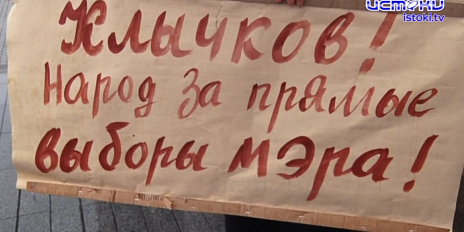 истоки
istoki.tv
Клычков!
Народ за прямые
выборы мэра!